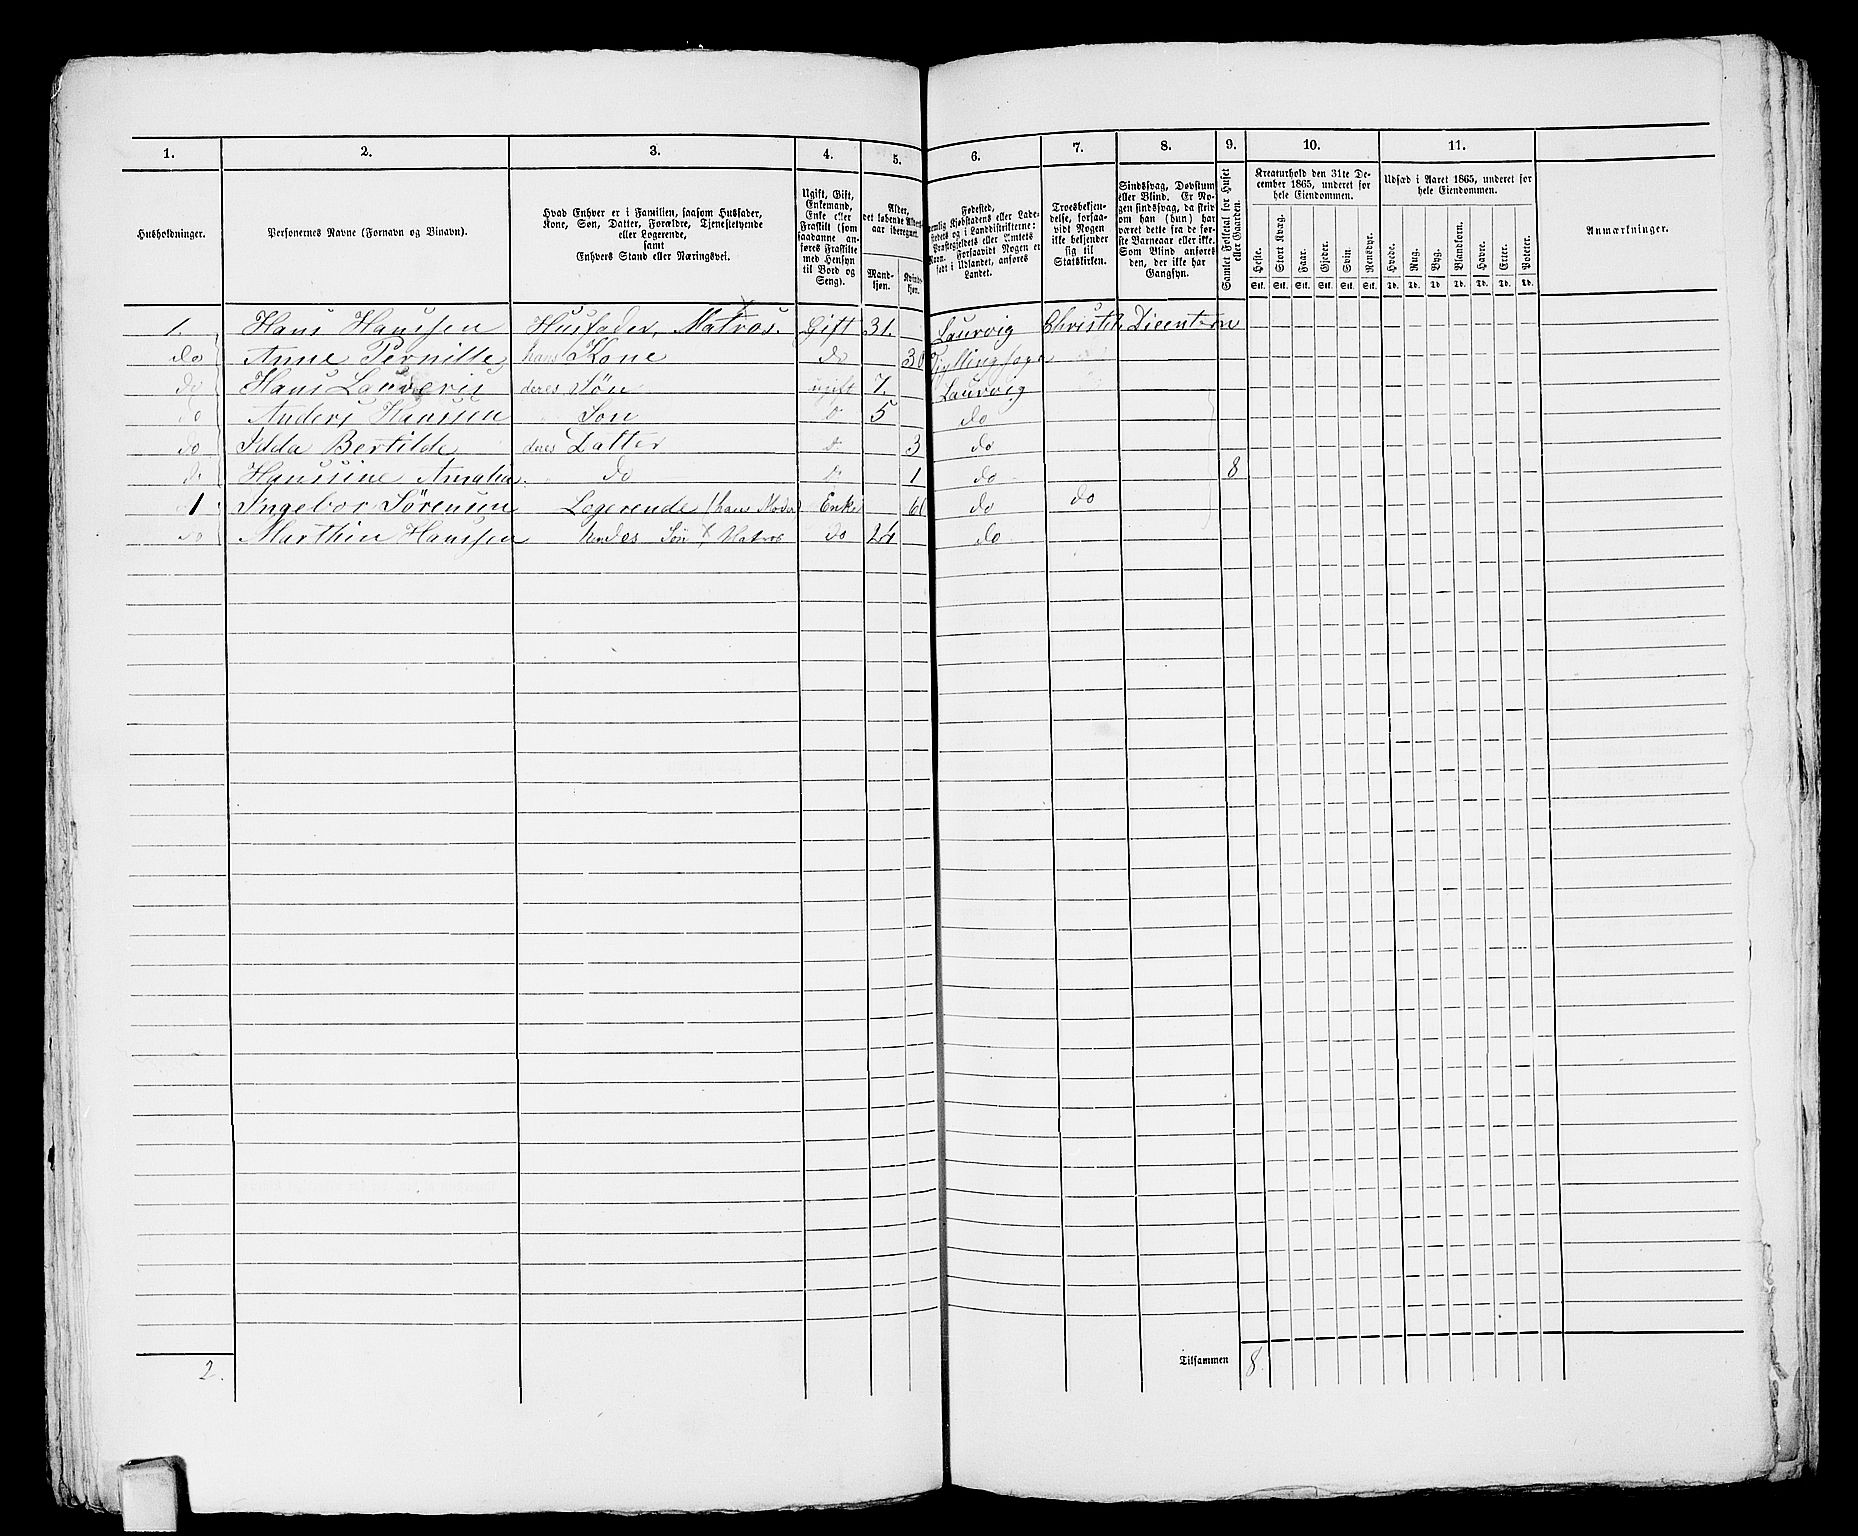 1. 2. 3. 4. 5. 6. 7. 8. 9. 10. 11.
Husholdninger.
Personernes Navne (Fornavn og Binavn).
Hvad Enhver er i Familien, saasom Husfader,
Kone, Søn, Datter, Forældre, Tjenestetyende
eller Logerende,
samt
Enhvers Stand eller Næringsvei.
Ugift, Gift,
Enkemand,
Enke eller
Fraskilt (som
saadanne an-
føres Fraskilte
med Hensyn
til Bord og
Seng).
Alder,
det løbende Alders-
aar iberegnet.
Mand-
kjøn.
Kvinde-
kjøn.
Fødested,
nemlig Kjøbstadens eller Lade-
stedets og i Landdistrikterne:
Præstegjeldets eller Amtets
Navn. Forsaavidt Nogen er
født i Udlandet, anføres
Landet.
Troesbekjen-
delse, forsaa-
vidt Nogen
ikke bekjender
sig til
Statskirken.
Sindssvag, Døvstum
eller Blind. Er No-
gen sindssvag, da skriv
om han (hun) har
været dette fra de før-
ste Barneaar eller ikke.
Som Blind anføres
den, der ikke har
Gangsyn.
Samlet Folketal for Huset
eller Gaarden.
Kreaturhold den 31te De-
cember 1865, underet for
hele Eiendommen.
Heste. Stort Kvæg. Faar. Gjeder. Svin. Rensdyr.
Stk. Stk. Stk. Stk. Stk. Stk.
Udsæd i Aaret 1865, underet for
hele Eiendommen.
Hvede. Rug. Byg. Blandkorn. Havre. Erter. Poteter.
Td. Td. Td. Td. Td. Td. Td.
Anmærkninger.
1. Hans Hanssen Husfader, Matros. Gift 31. Laurvig Christel. Dicentern
do Anne Pernille hans Kone do 30
do Hans deres Søn ugift 7. Laurvig
do Anders Hanssen Søn do 5 do
do Idda Bertilde deres Datter do 3 do
do Hanssine Amalia do do 1 do 8
1 Ingebor Sørensen Logerende (hans Moder) Enke 61 do do
do Marthin Hanssen hendes Søn, Matros do 24 do
2. Tilsammen 8.